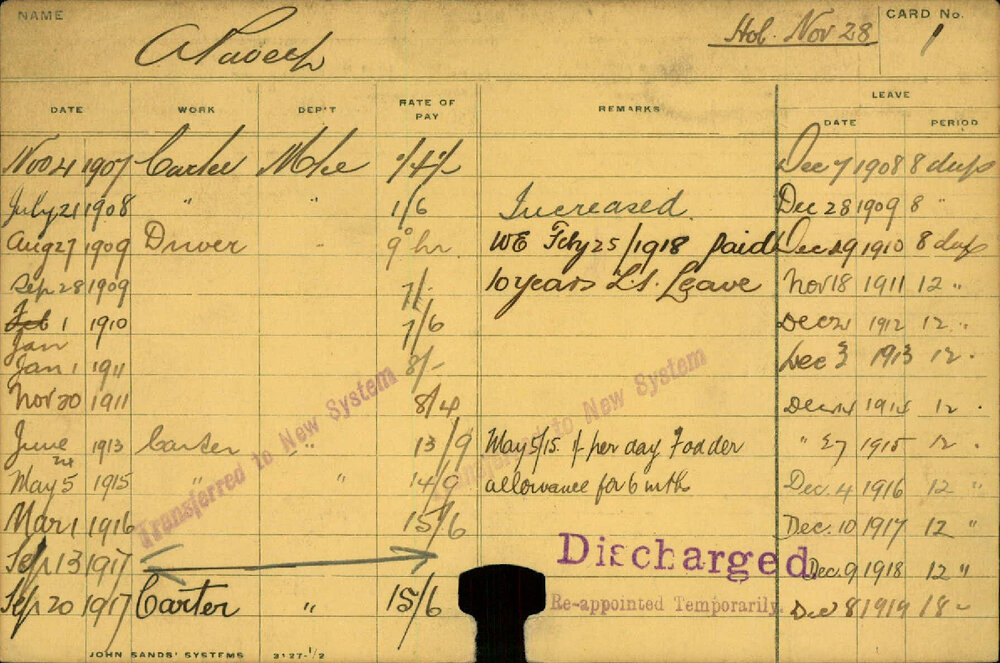 NAME
Hol. Nov 28
CARD No.
1
DATE WORK DEP'T RATE OF PAY REMARKS LEAVE
DATE PERIOD
Nov 21 1907 Carter Dec 7 1908 8 days
July 21 1908 " " 1/6 Increased. Dec 28 1909 8 "
Aug 27 1909 Driver 9° hr WE Feby 25/1918 paid Dec 29 1910 8 days
Sep 28 1909 7/- 10 years L.S. Leave Nov 18 1911 12 "
Feb 1 1910 7/6 Dec 21 1912 12 "
Jan
Jan 1 1911 8/- Dec 3 1913 12 "
Nov 20 1911 8/4 Dec 14 1914 12 "
June 1913 Carter " 13/9 May 5/15. 1/- per day Fodder " 27 1915 12 "
May 5 1915 " " 14/9 allowance for 6 mths Dec. 4 1916 12 "
Mar 1 1916 15/6 Dec. 10 1917 12 "
Sep 13 1917 Dec. 9 1918 12 "
Sep 20 1917 Carter " 15/6 Dec 8 1919 18 -
Transferred to New System
Transferred to New System
Discharged
Re-appointed Temporarily.
JOHN SANDS' SYSTEMS 3127-1/2